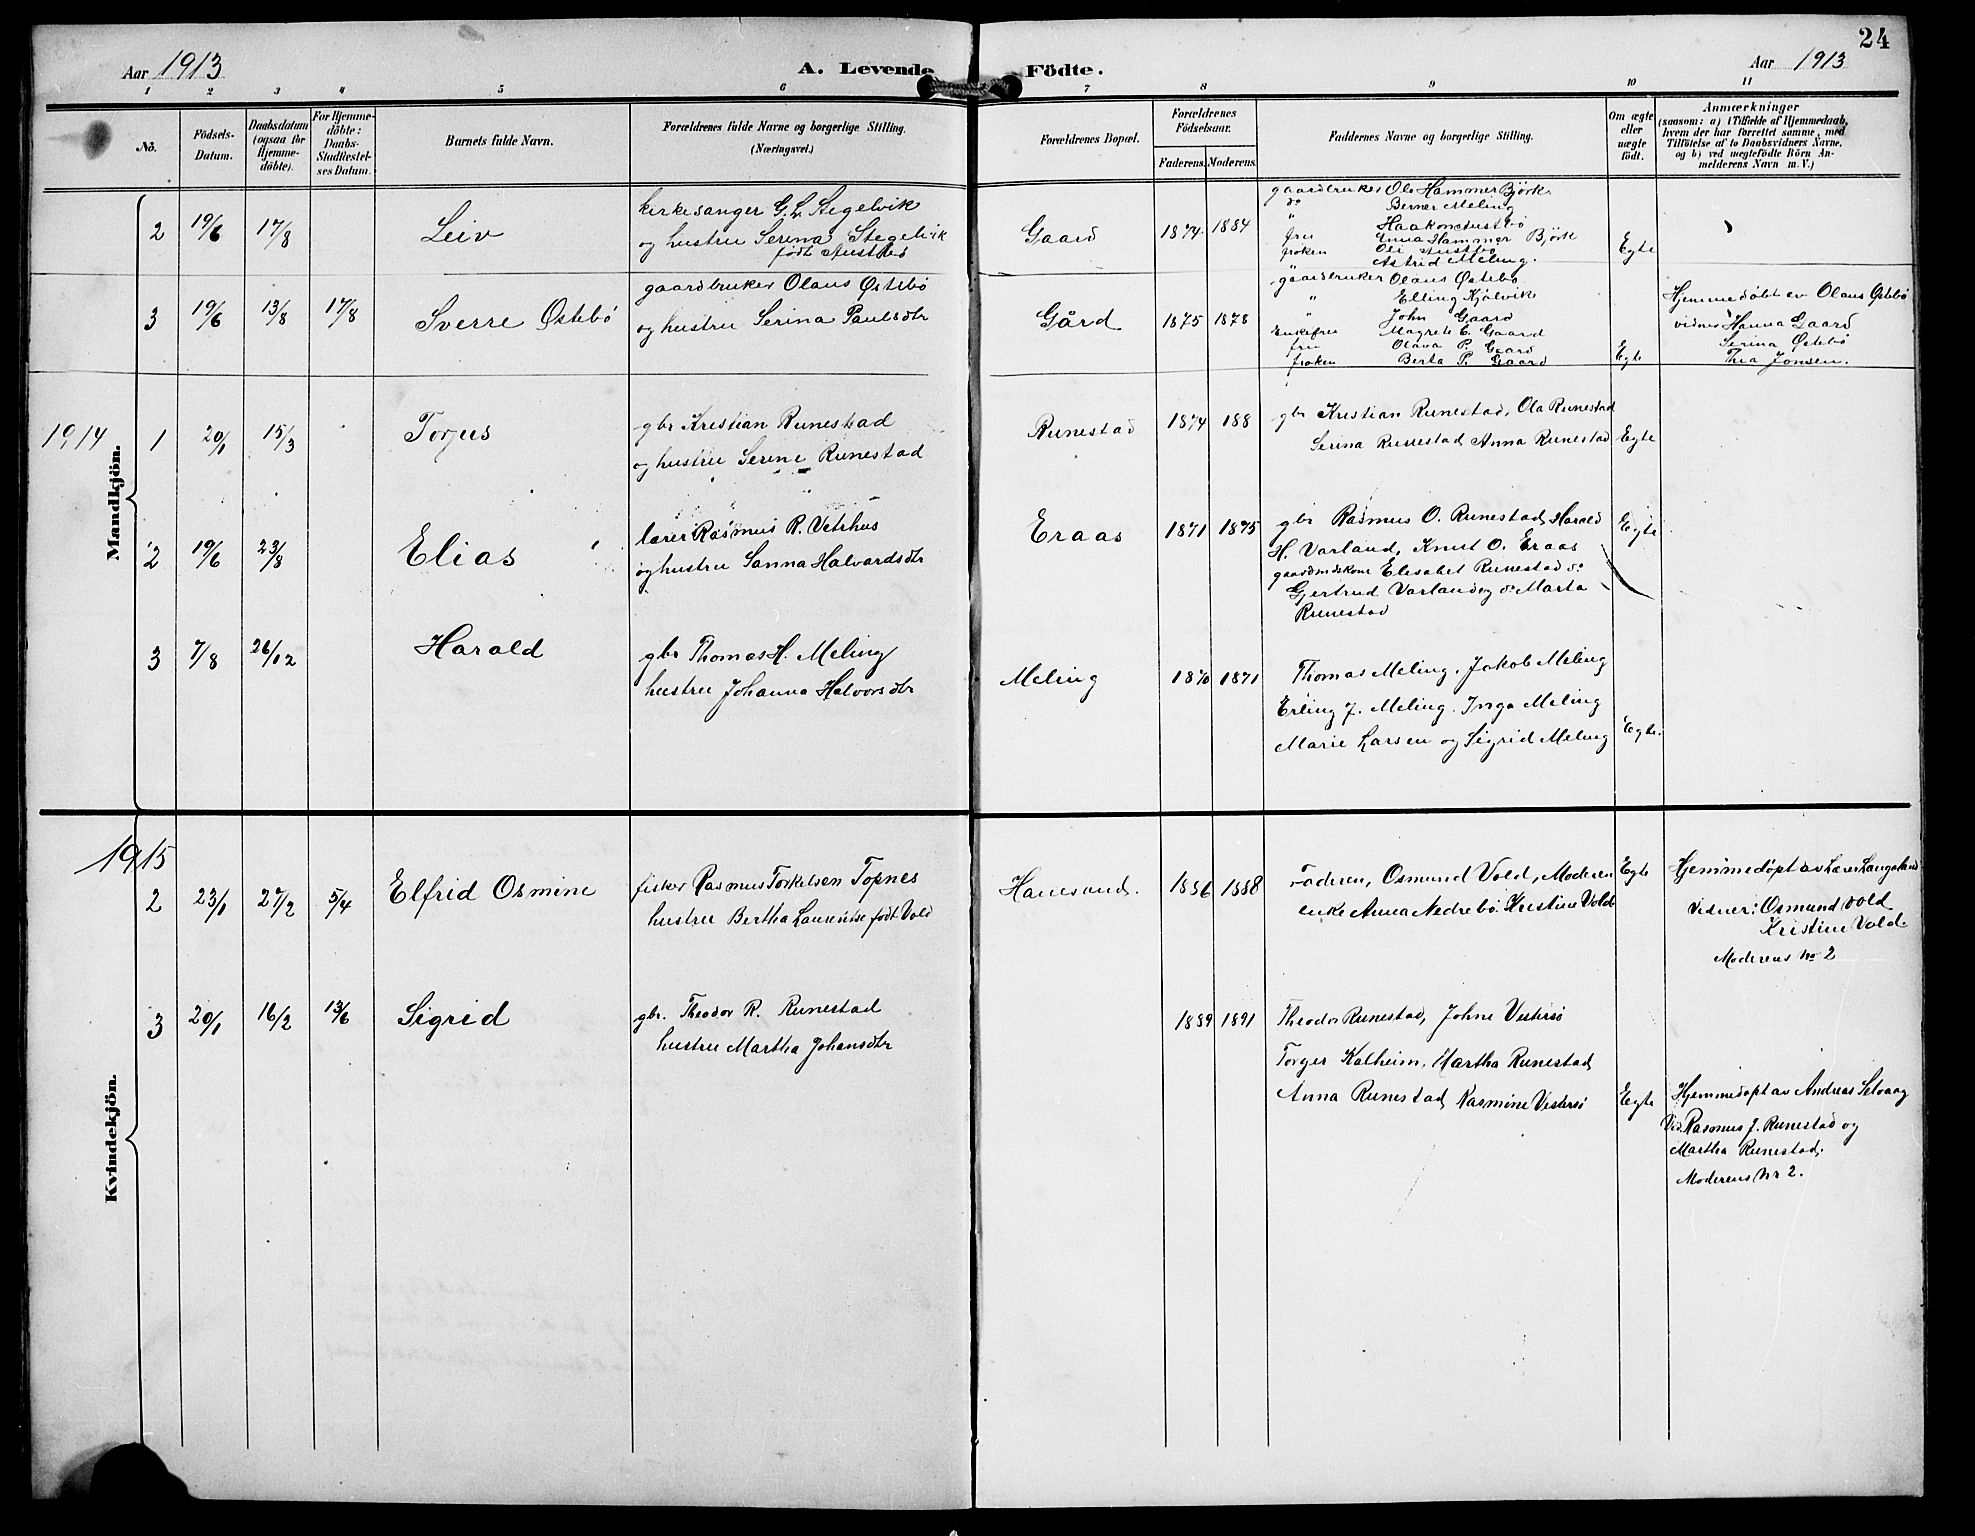 24
Aar 1913
A. Levende Födte.
Aar 1913
1 2 3 4 5 6 7 8 9 10 11
No.
Födsels-
Datum.
Daabsdatum
(ogsaa for
Hjemme-
döbte).
For Hjemme-
döbte:
Daabs-
Stadfæstel-
ses Datum.
Barnets fulde Navn.
Forældrenes fulde Navne og borgerlige Stilling.
(Næringsvei.)
Forældrenes Bopæl.
Forældrenes
Födselsaar.
Faderens. Moderens.
Faddernes Navne og borgerlige Stilling.
Om ægte
eller
uægte
födt.
Anmærkninger
(saasom: a) i Tilfælde af Hjemmedaab,
hvem der har forrettet samme, med
Tilföielse af to Daabsvidners Navne,
og b) ved uægtefödte Börn An-
melderens Navn m. V.)
Mandkjön.
2 19/6 17/8 Leiv
kirkesanger G. L. Stegelvik
og hustru Serina Stegelvik
født Austbø
Gaard 1874 1884
gaardbruker Ole Hammer Bjórk.
do Berner Meling
" Haakon Austbø
fru Anna Hammer Björk
frøken Oli Austbø
" Astrid Meling.
Egte
3 19/6 13/8 17/8 Sverre Østebö
gaardbruker Olaus Østebö
og hustru Serina Paulsdtr
Gård 1875 1878
gaardbruker Olaus Østebö
" Elling Kjølvik
" John Gaard
Enkefru Magrete C. Gaard
fru Olava P. Gaard
frøken Berta P. Gaard
Egte
Hjemmedöbt av Olaus Østebö
vidner Hanna Gaard
Serina Østebö
Thea Jonsen.
1914
1 20/1 15/3 Torjus
gbr Kristian Runestad
og hustru Serine Runestad
Runestad 1874 188
gbr Kristian Runestad, Ola Runestad
Serina Runestad Anna Runestad
Egte
2 19/6 23/8 Elias
lærer Rasmus R. Vetrhus
og hustru Sanna Halvardsdtr
Eraas 1871 1875
gbr Rasmus O. Runestad, Harald
H. Varland, Knut O. Eraas
gaardmdskone Elisabet Runestad do
Gjertrud Varland og do Marta
Runestad
Egte
3 7/8 26/12 Harald
gbr Thomas H. Meling
hustru Johanna Halvorsdtr
Meling 1870 1871
Thomas Meling, Jakob Meling
Erling J. Meling. Inga Meling
Marie Larsen og Sigrid Meling
Egte.
1915
Kvindekjön.
2 23/1 27/2 5/4 Elfrid Osmine
fisker Rasmus Torkelsen Topnes
hustru Bertha Laurentse født Vold
Hanesund. 1886 1888
Faderen, Osmund Vold, Moderen
enke Anna Nedrebö Kristine Vold
Egte
Hjemmedöpt av Lærer Langaland
Vidner: Osmund Vold
Kristine Vold.
Moderens no 2
3 20/1 16/2 13/6 Sigrid
gbr. Theodor R. Runestad
hustru Martha Johansdtr
1889 1891
Theodor Runestad, Johne Vestersö
Torger Kalheim, Martha Runestad,
Anna Runestad, Rasmine Vestersö
Egte
Hjemmedöpt av Andreas Selvaag
Vid. Rasmus J. Runestad og
Martha Runestad.
Moderens Nr 2.